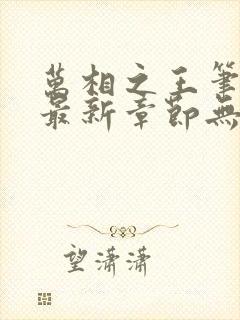 萬相之王筆
最新章節無
望瀟瀟